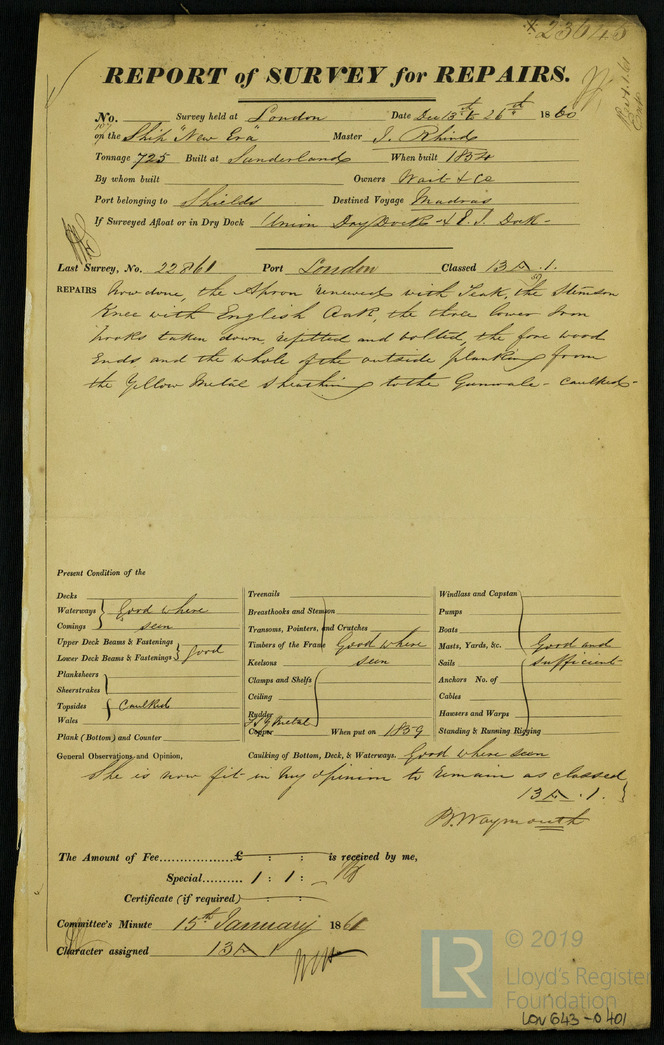 * 23645
REPORT of SURVEY for REPAIRS.
No. Survey held at London Date Dec 13th to 26th 1860
on the Ship "New Era" Master J. Rhind
Tonnage 725 Built at Sunderland When built 1854
By whom built Owners Wait & Co
Port belonging to Shields Destined Voyage Madras
If Surveyed Afloat or in Dry Dock Union Dry Dock & E. I. Dock -
Last Survey, No. 22861 Port London Classed 13 A . 1.
REPAIRS Now done, the Apron renewed with Teak, the Stemson
Knee with English Oak, the three lower Iron
hooks taken down, refitted and bolted, the fore wood
Ends and the whole of the outside planking from
the Yellow Metal Sheathing to the Gunwale - caulked -
Present Condition of the
Decks
Waterways Good where
Comings seen
Upper Deck Beams & Fastenings
Lower Deck Beams & Fastenings good
Planksheers
Sheerstrakes
Topsides Caulked
Wales
Plank (Bottom) and Counter
Treenails
Breasthooks and Stemson
Transoms, Pointers, and Crutches
Timbers of the Frame Good where
Keelsons seen
Clamps and Shelfs
Ceiling
Rudder
Y Metal
Copper When put on 1859
Windlass and Capstan
Pumps
Boats
Masts, Yards, &c. Good and
Sails sufficient
Anchors No. of
Cables
Hawsers and Warps
Standing & Running Rigging
General Observations and Opinion, Caulking of Bottom, Deck, & Waterways. Good where seen
She is now fit in my opinion to remain as classed
13 A . 1.
B. Waymouth
The Amount of Fee............... £ : : is received by me,
Special.......... 1 : 1 : -
Certificate (if required) : :
Committee's Minute 15th January 1861
Character assigned 13 A 1
LR © 2019
Lloyd's Register
Foundation
LON 643 - 0401